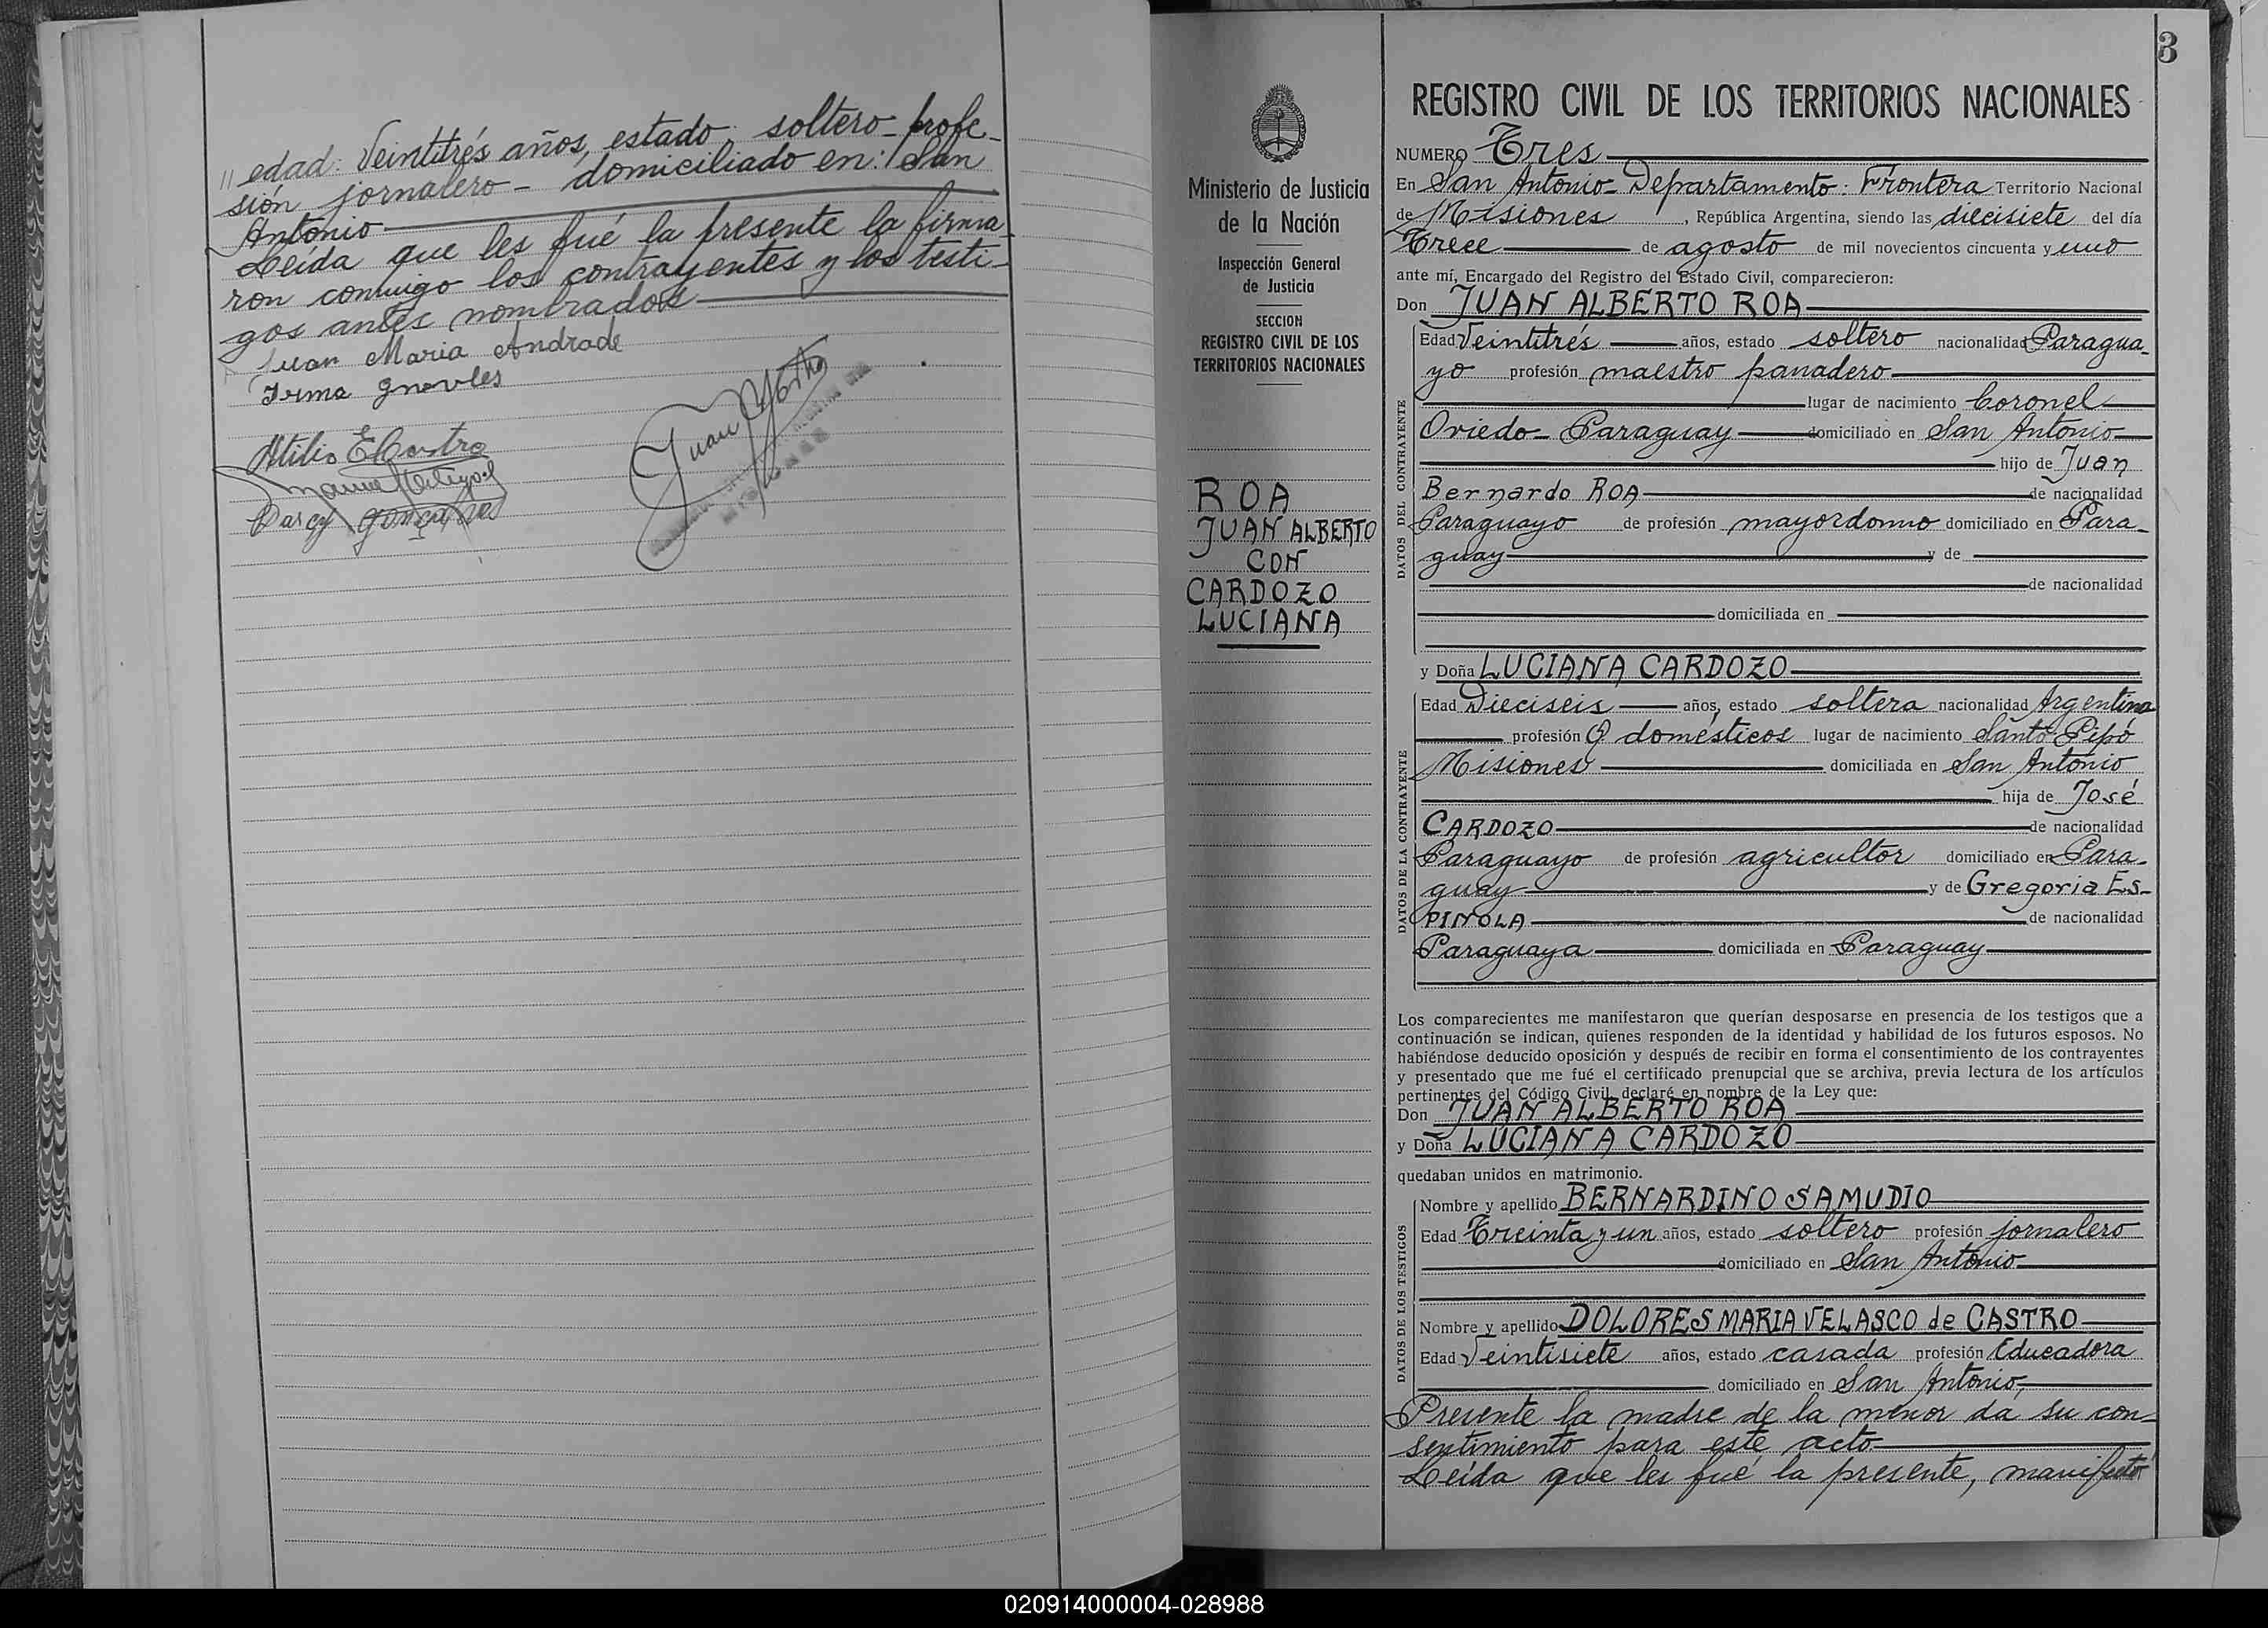 " edad: Veintitrés años, estado: soltero - profe-
sión jornalero - domiciliado en: San
Antonio
Leída que les fué la presente la firma-
ron conmigo los contrayentes y los testi-
gos antes nombrados
Juan Maria Andrade
Irma
Atilio E Castro
Darcy
Juan
3
Ministerio de Justicia
de la Nación
Inspección General
de Justicia
SECCION
REGISTRO CIVIL DE LOS
TERRITORIOS NACIONALES
ROA
JUAN ALBERTO
CON
CARDOZO
LUCIANA
REGISTRO CIVIL DE LOS TERRITORIOS NACIONALES
NUMERO Tres
En San Antonio - Departamento: Frontera Territorio Nacional
de Misiones, República Argentina, siendo las diecisiete del día
Trece de agosto de mil novecientos cincuenta y uno
ante mí, Encargado del Registro del Estado Civil, comparecieron:
Don JUAN ALBERTO ROA
DATOS DEL CONTRAYENTE
Edad Veintitrés años, estado soltero nacionalidad Paragua-
yo profesión maestro panadero
lugar de nacimiento Coronel
Oviedo - Paraguay domiciliado en San Antonio
hijo de Juan
Bernardo ROA de nacionalidad
Paraguayo de profesión mayordomo domiciliado en Para-
guay y de
de nacionalidad
domiciliada en
y Doña LUCIANA CARDOZO
DATOS DE LA CONTRAYENTE
Edad Dieciseis años, estado soltera nacionalidad Argentina
profesión Q domésticos lugar de nacimiento Santo Pipó
Misiones domiciliada en San Antonio
hija de José
CARDOZO de nacionalidad
Paraguayo de profesión agricultor domiciliado en Para-
guay y de Gregoria Es-
PINOLA de nacionalidad
Paraguaya domiciliada en Paraguay
Los comparecientes me manifestaron que querían desposarse en presencia de los testigos que a
continuación se indican, quienes responden de la identidad y habilidad de los futuros esposos. No
habiéndose deducido oposición y después de recibir en forma el consentimiento de los contrayentes
y presentado que me fué el certificado prenupcial que se archiva, previa lectura de los artículos
pertinentes del Código Civil, declaré en nombre de la Ley que:
Don JUAN ALBERTO ROA
y Doña LUCIANA CARDOZO
quedaban unidos en matrimonio.
DATOS DE LOS TESTIGOS
Nombre y apellido BERNARDINO SAMUDIO
Edad Treinta y un años, estado soltero profesión jornalero
domiciliado en San Antonio
Nombre y apellido DOLORES MARIA VELASCO de CASTRO
Edad Veintisiete años, estado casada profesión Educadora
domiciliado en San Antonio,
Presente la madre de la menor da su con-
sentimiento para este acto
Leída que les fué la presente, manifestó
020914000004-028988